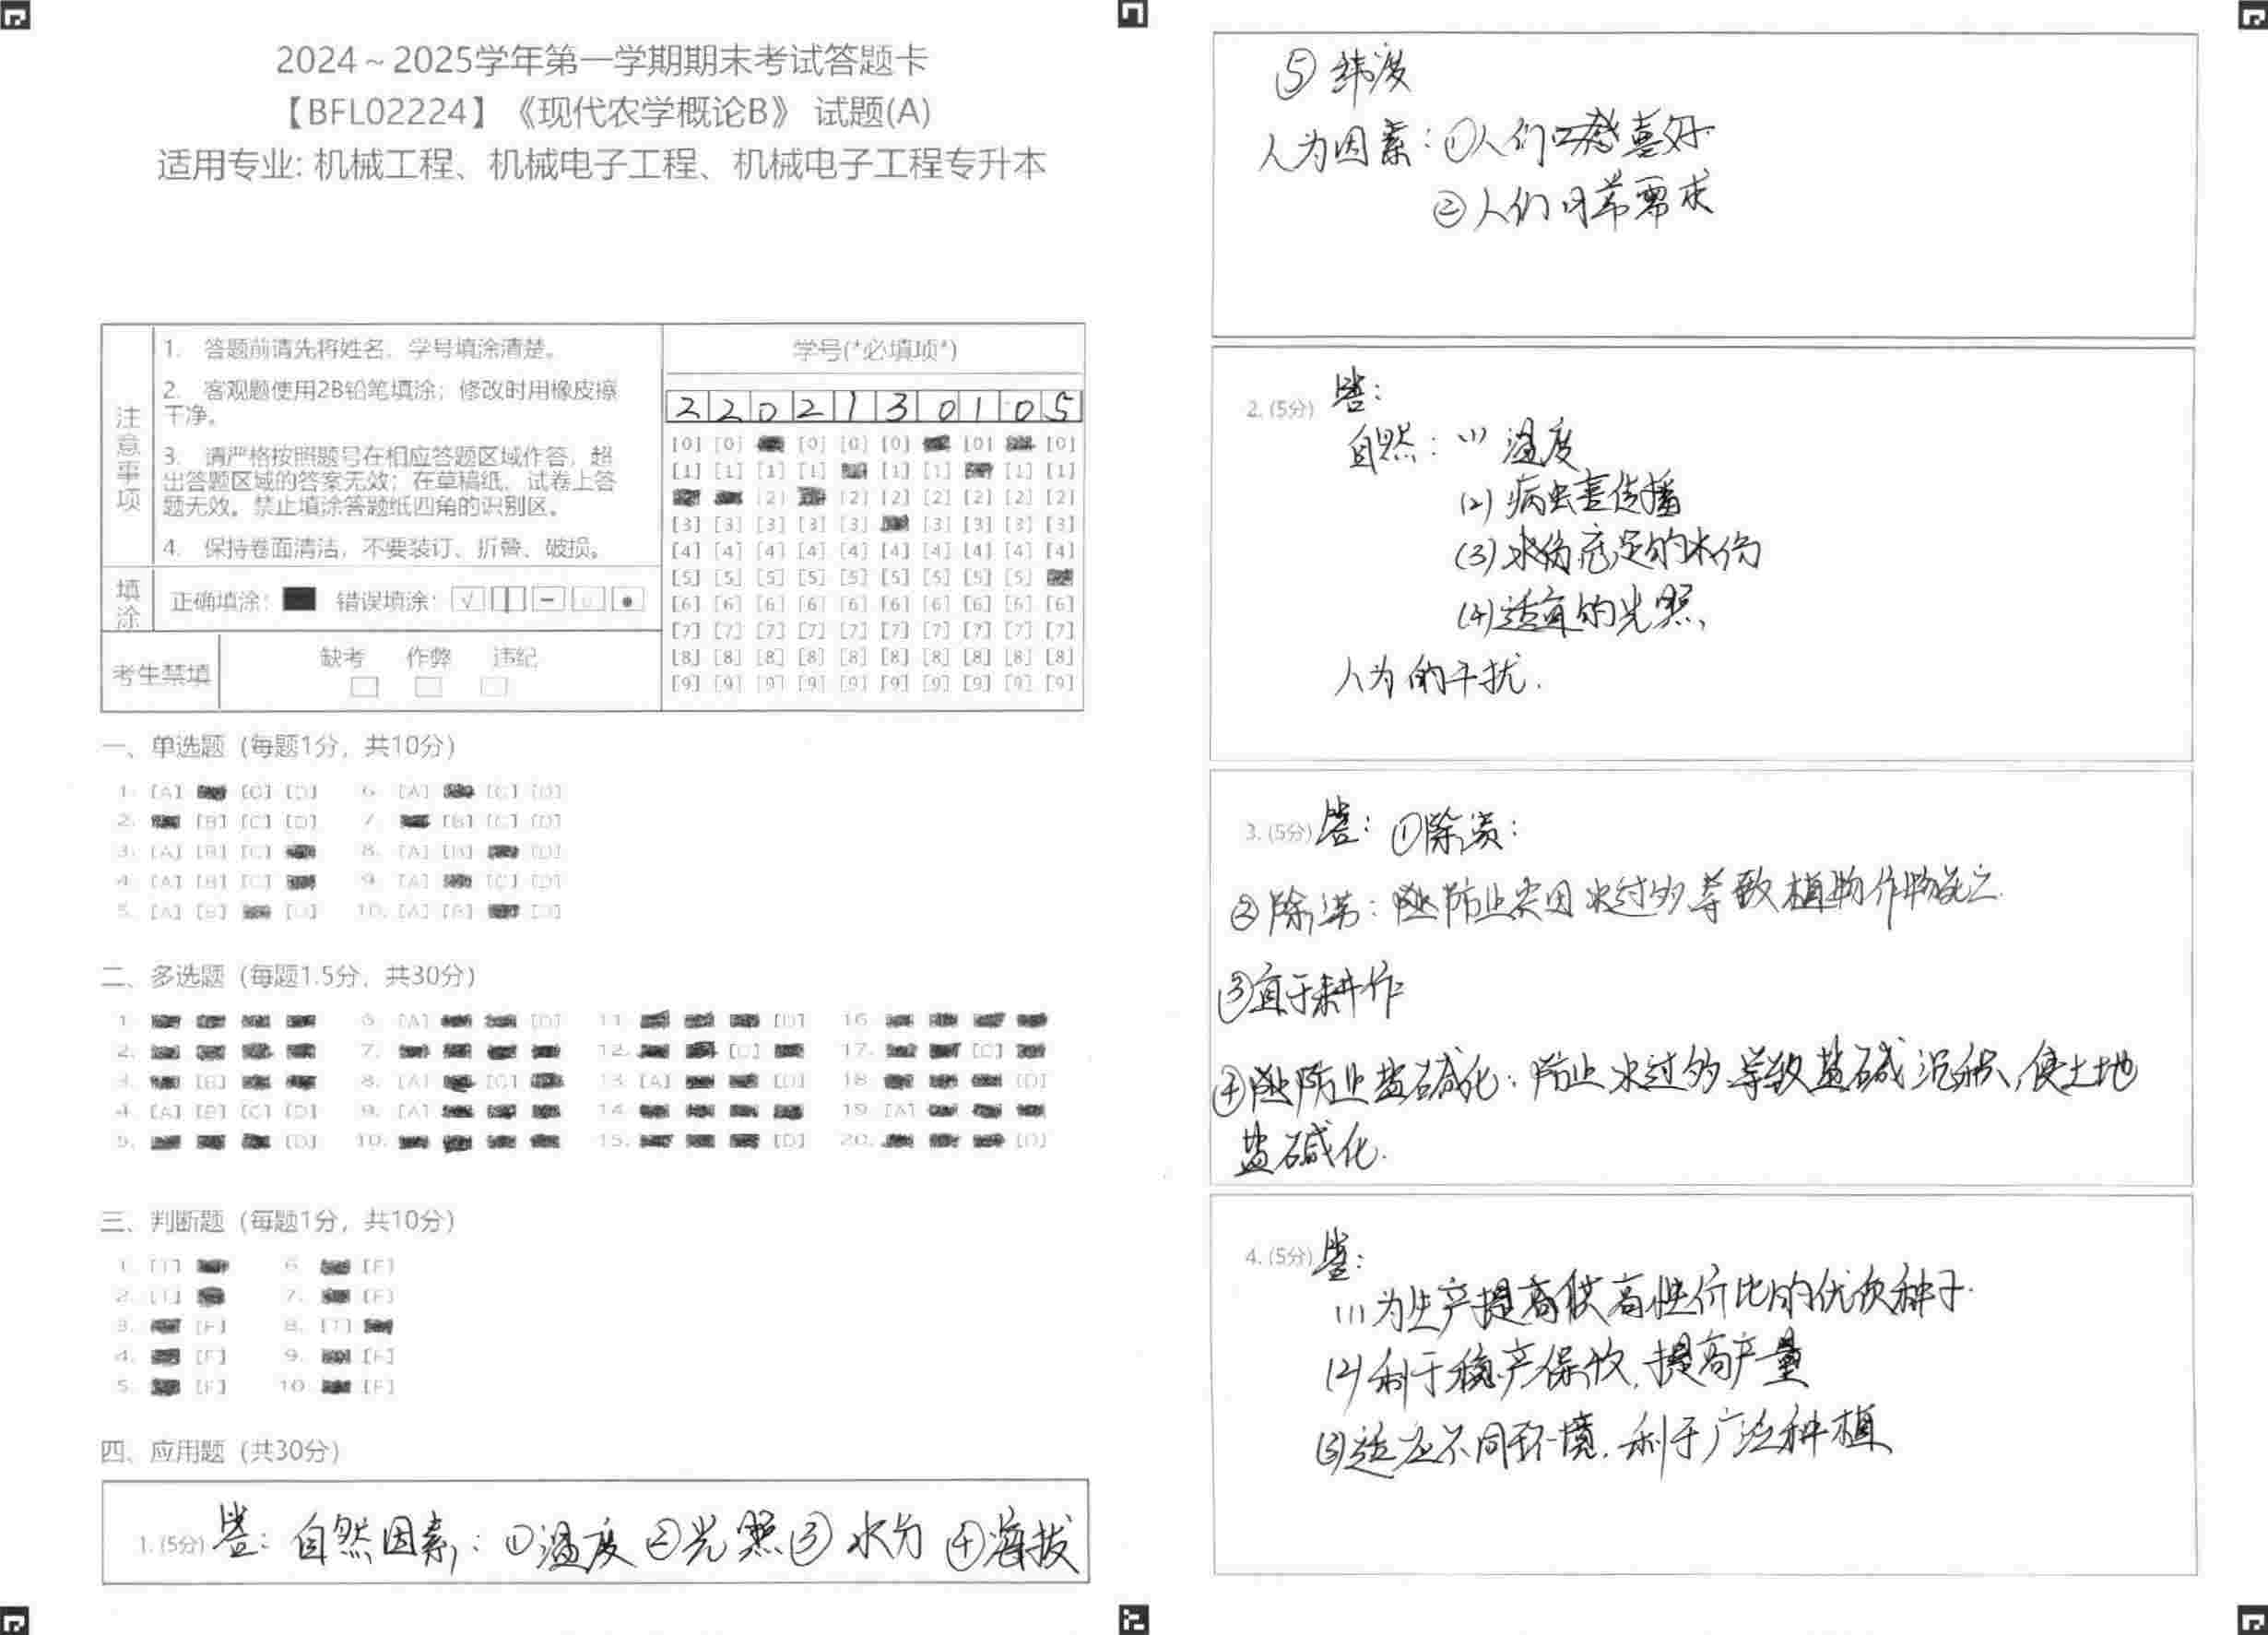 2024～2025学年第一学期期末考试答题卡
【BFL02224】《现代农学概论B》 试题(A)
适用专业: 机械工程、机械电子工程、机械电子工程专升本
注意事项
1. 答题前请先将姓名、学号填涂清楚。
2. 客观题使用2B铅笔填涂；修改时用橡皮擦
干净。
3. 请严格按照题号在相应答题区域作答，超
出答题区域的答案无效；在草稿纸、试卷上答
题无效。禁止填涂答题纸四角的识别区。
4. 保持卷面清洁，不要装订、折叠、破损。
填涂
正确填涂： 错误填涂：
考生禁填
缺考 作弊 违纪
学号(*必填项*)
2 2 0 2 1 3 0 1 0 5
[0] [0] [0] [0] [0] [0]
[1] [1] [1] [1] [1] [1] [1] [1]
[2] [2] [2] [2] [2] [2] [2]
[3] [3] [3] [3] [3] [3] [3] [3] [3]
[4] [4] [4] [4] [4] [4] [4] [4] [4] [4]
[5] [5] [5] [5] [5] [5] [5] [5] [5]
[6] [6] [6] [6] [6] [6] [6] [6] [6] [6]
[7] [7] [7] [7] [7] [7] [7] [7] [7] [7]
[8] [8] [8] [8] [8] [8] [8] [8] [8] [8]
[9] [9] [9] [9] [9] [9] [9] [9] [9] [9]
一、单选题 (每题1分，共10分)
1. [A] [C] [D] 6. [A] [C] [D]
2. [B] [C] [D] 7. [B] [C] [D]
3. [A] [B] [C] 8. [A] [B] [D]
4. [A] [B] [C] 9. [A] [C] [D]
5. [A] [B] [D] 10. [A] [B] [D]
二、多选题 (每题1.5分，共30分)
1. 6. [A] [D] 11. [D] 16.
2. 7. 12. [C] 17. [C]
3. [B] 8. [A] [C] 13. [A] [D] 18. [D]
4. [A] [B] [C] [D] 9. [A] 14. 19. [A]
5. [D] 10. 15. [D] 20. [D]
三、判断题 (每题1分，共10分)
1. [T] 6. [F]
2. [T] 7. [F]
3. [F] 8. [T]
4. [F] 9. [F]
5. [F] 10. [F]
四、应用题 (共30分)
1. (5分) 答：自然因素：①温度②光照③水分④海拔
⑤纬度
人为因素：①人们口感喜好
②人们日常需求
2. (5分) 答：
自然：(1) 温度
(2) 病虫害传播
(3) 充足的水份
(4) 适宜的光照
人为的干扰.
3. (5分) 答：①除渍：
②除涝：防止因水过多导致植物作物死亡.
③宜于耕作
④防止盐碱化：防止水过多导致盐碱沉积，使土地
盐碱化.
4. (5分) 答：
(1) 为生产提供高性价比的优质种子.
(2) 利于稳产保收，提高产量
(3) 适应不同环境，利于广泛种植